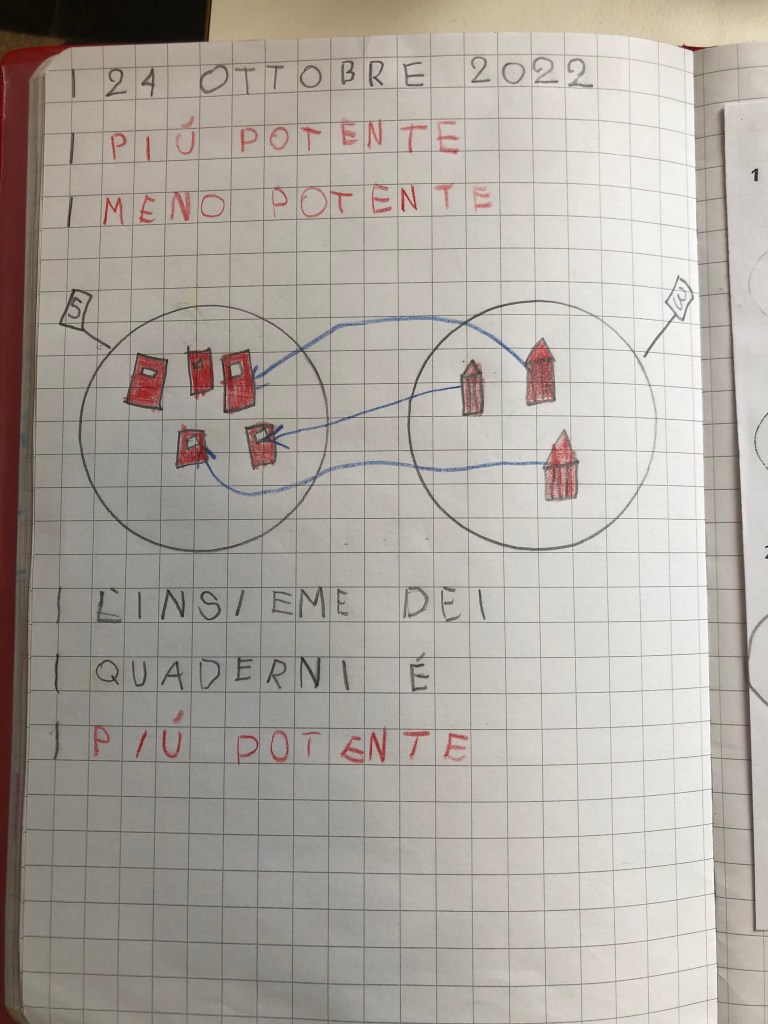 24 OTTOBRE 2022
PIÚ POTENTE
MENO POTENTE
5
3
L'INSIEME DEI
QUADERNI É
PIÚ POTENTE
1
2